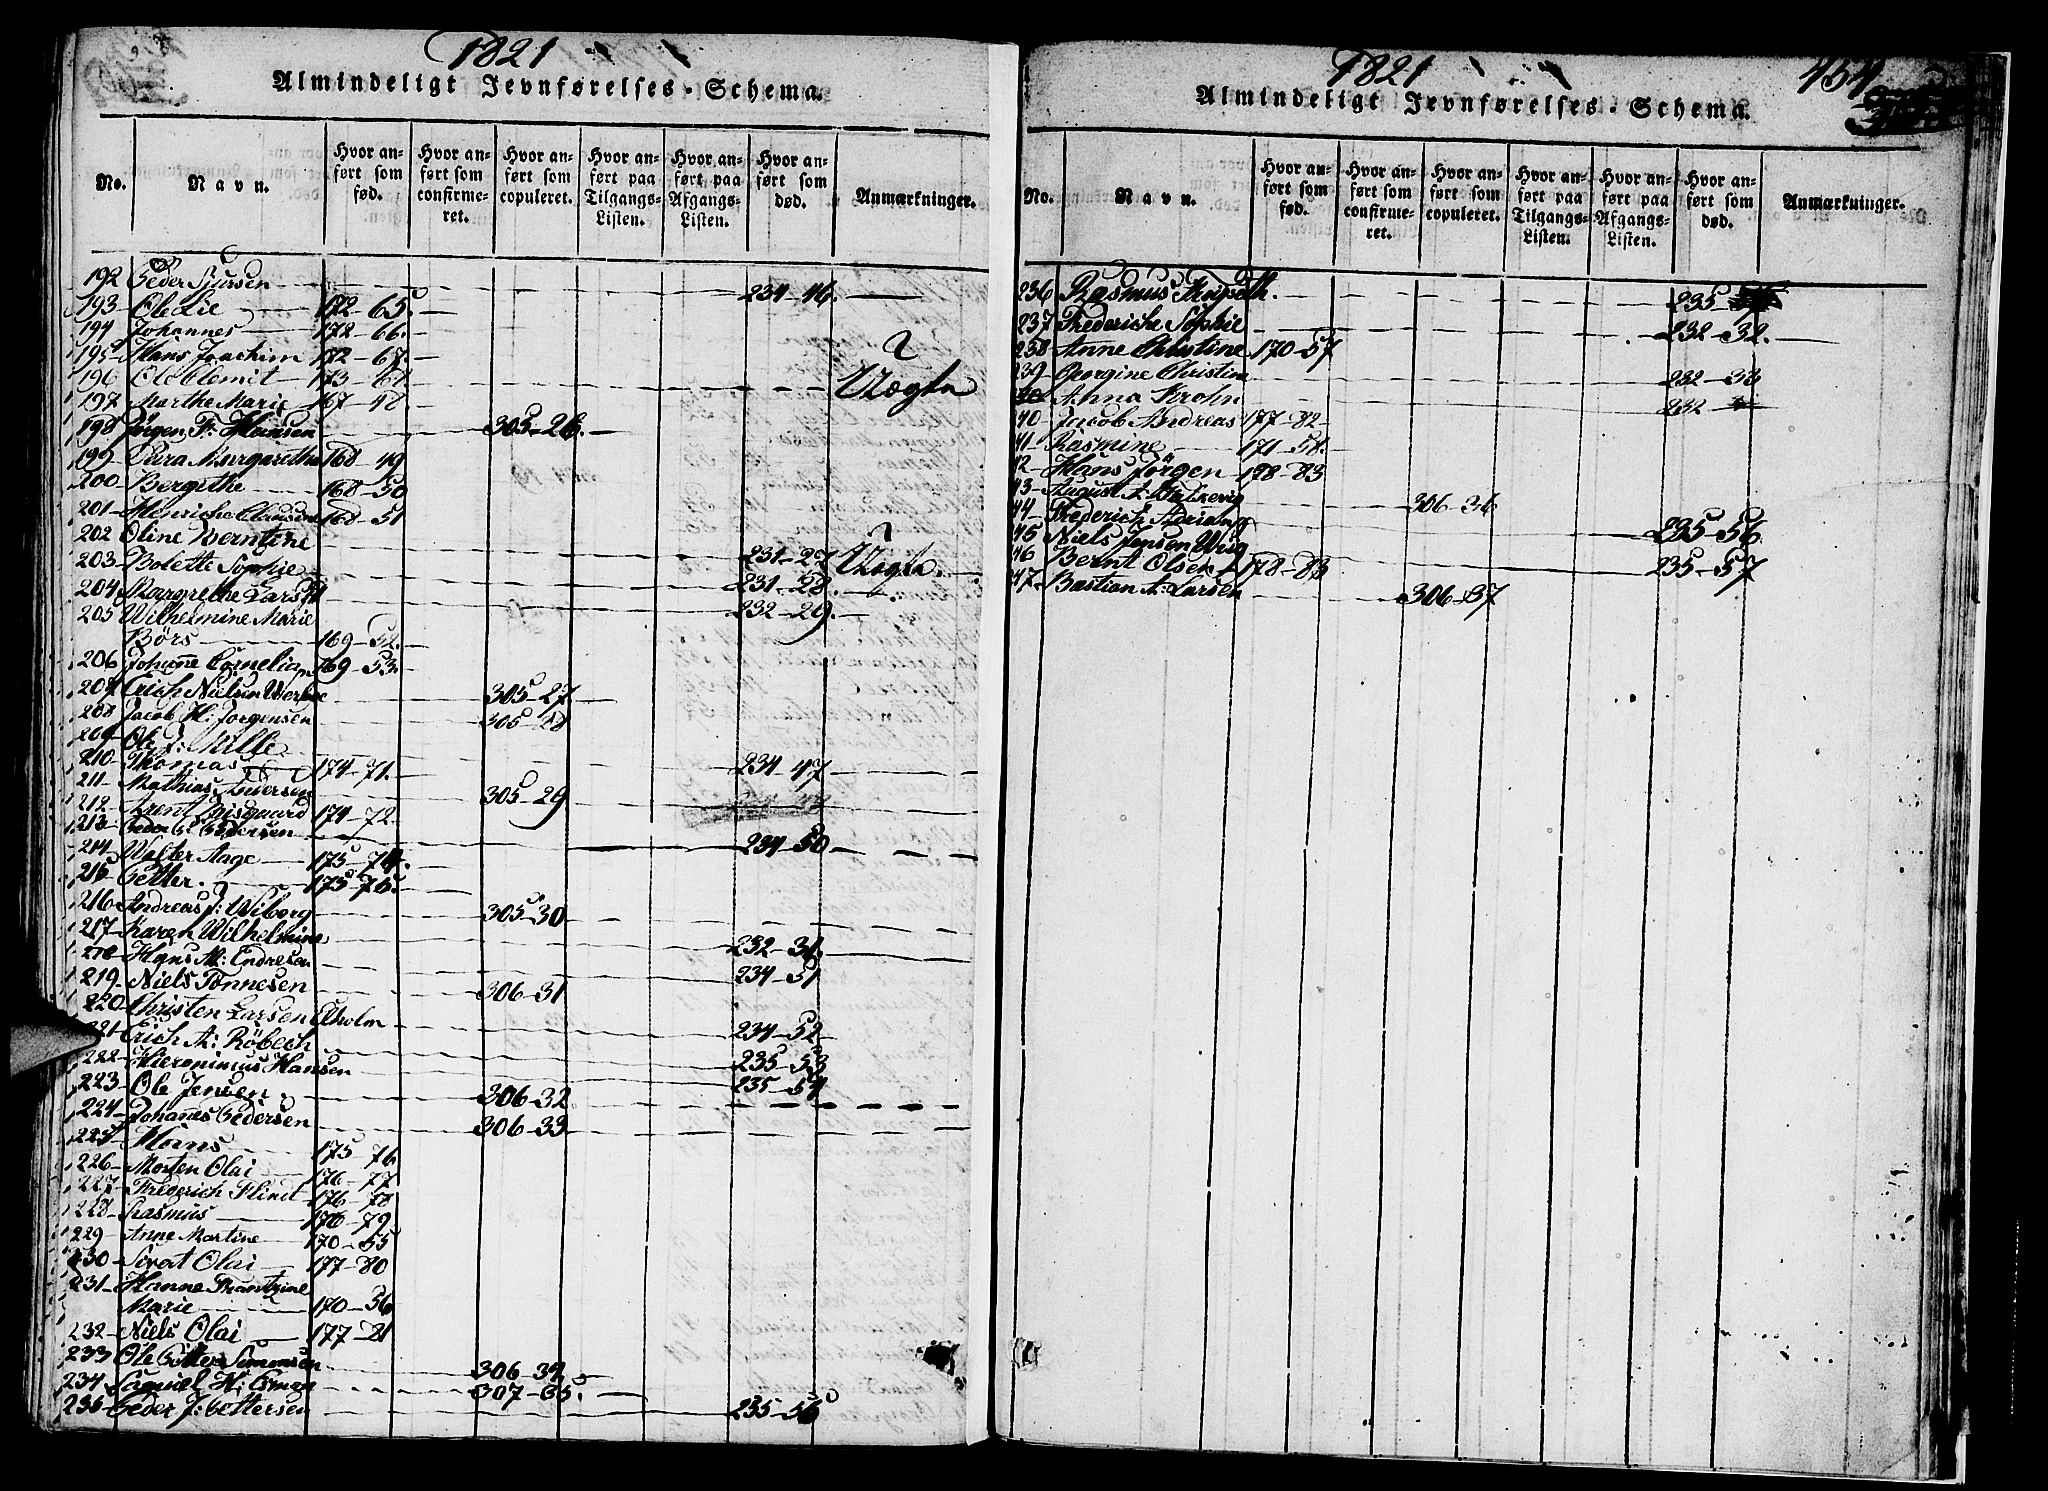 1821
Almindeligt Jevnførelses-Schema.
No. Navn. Hvor anført som fød. Hvor anført som confirmeret. Hvor anført som copuleret. Hvor anført paa Tilgangs-Listen. Hvor anført paa Afgangs-Listen. Hvor anført som død. Anmærkninger.
192 Peder Sjursen 234-46.
193 Ole Lie 172-65
194 Johannes 172-66.
195 Hans Joachim 172-67.
196 Ole
197 Marthe Marie 167-48.
198 Jörgen F: Hansen 305-26.
199 Margarethe 168-49
200 Bergithe 168-50
201 168-51
202 Oline Berntine 231-27
203 Bolette Sophie 231-28.
204 Margrethe Lars 232-29.
205 Wilhelmine Marie
Børs 169-52.
206 Johanne Cornelia 169-53.
207 Erich Nielsen 305-27
208 Jacob H: Jorgensen 305-28
209 Ole J:
210 Thomas 174-71. 234-47
211 Mathias 305-29
212 174-72
213 Pedersen 234-50
214 Wolter Aage 175-74.
215 Petter. 175-75.
216 Andreas J: Wiborg 305-30
217 Karen Wilhelmine 232-31.
218 Hans M: Endresen 234-51
219 Niels Tönnesen 306-31
220 Christen Larsen 234-52
221 Erich A: Röbech 235-53
222 Hieronimus Hansen 235-54
223 Ole Jensen 306-32
224 Johannes Pedersen 306-33
225 Hans 175-76
226 Morten Olai 176-77
227 Frederich Flindt 176-78
228 Rasmus 176-79
229 Anne Martine 170-55
230 Sivat Olai 177-80
231 Hanne
Marie 170-56
232 Niels Olai 177-81
233 Ole Petter Simonsen 306-34
234 Samuel H: 307-35.
235 Peder J: Pettersen 235-55
1821
454
Almindeligt Jevnførelses-Schema.
No. Navn. Hvor anført som fød. Hvor anført som confirmeret. Hvor anført som copuleret. Hvor anført paa Tilgangs-Listen. Hvor anført paa Afgangs-Listen. Hvor anført som død. Anmærkninger.
236 Rasmus 235
237 Frederiche Sophie 232-32.
238 Anne Christine 170-57
239 Georgine Christine 232-33
Anna Krohn 232
40 Jacob Andreas 177-82
41 Rasmine 171-58.
42 Hans Jörgen 178-83
43 August A: 306-36
44 Frederich Adrian 235-56
45 Niels Jensen 235-57
46 Bernt Olsen 178-83
47 Bastian A: Larsen 306-37